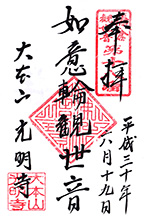 奉拝
平成三十年
八月十九日
如意輪観世音
大本山 光明寺
大本山
光明寺